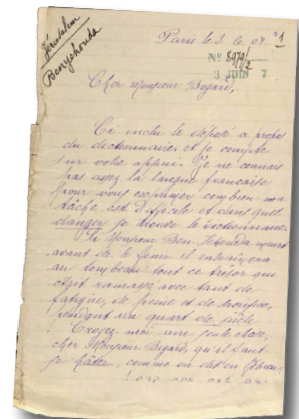 Jérusalem
Benyehouda
Paris le 3. 6. 07.
1
No 8979/2
3 JUIN 7
Cher Monsieur Bigard,
Ci inclu le dépôt a propos
du dictionnaire et je compte
sur votre appui. Je ne connais
pas assez la langue française
pour vous exprimer combien ma
tâche est difficile et dans quel
danger je trouve le dictionnaire.
Si Monsieur Ben-Jehouda meurt
avant de le finir il ensevelira
au tombeau tout ce trésor qui
était ramassé avec tant de
fatigue, de peine et de
pendant un quart de siècle.
Croyez moi une seule chose,
cher Monsieur Bigard, qu'il faut
se hâter, comme on dit en